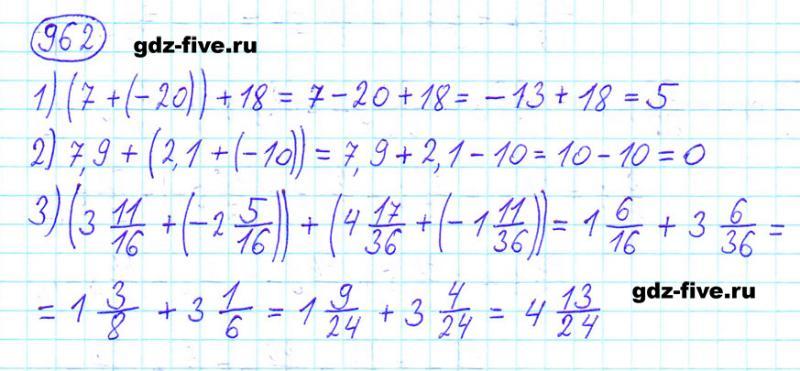 962
gdz-five.ru
1) (7 + (-20)) + 18 = 7 - 20 + 18 = -13 + 18 = 5
2) 7,9 + (2,1 + (-10)) = 7,9 + 2,1 - 10 = 10 - 10 = 0
3) (3 11/16 + (-2 5/16)) + (4 17/36 + (-1 11/36)) = 1 6/16 + 3 6/36 =
= 1 3/8 + 3 1/6 = 1 9/24 + 3 4/24 = 4 13/24
gdz-five.ru